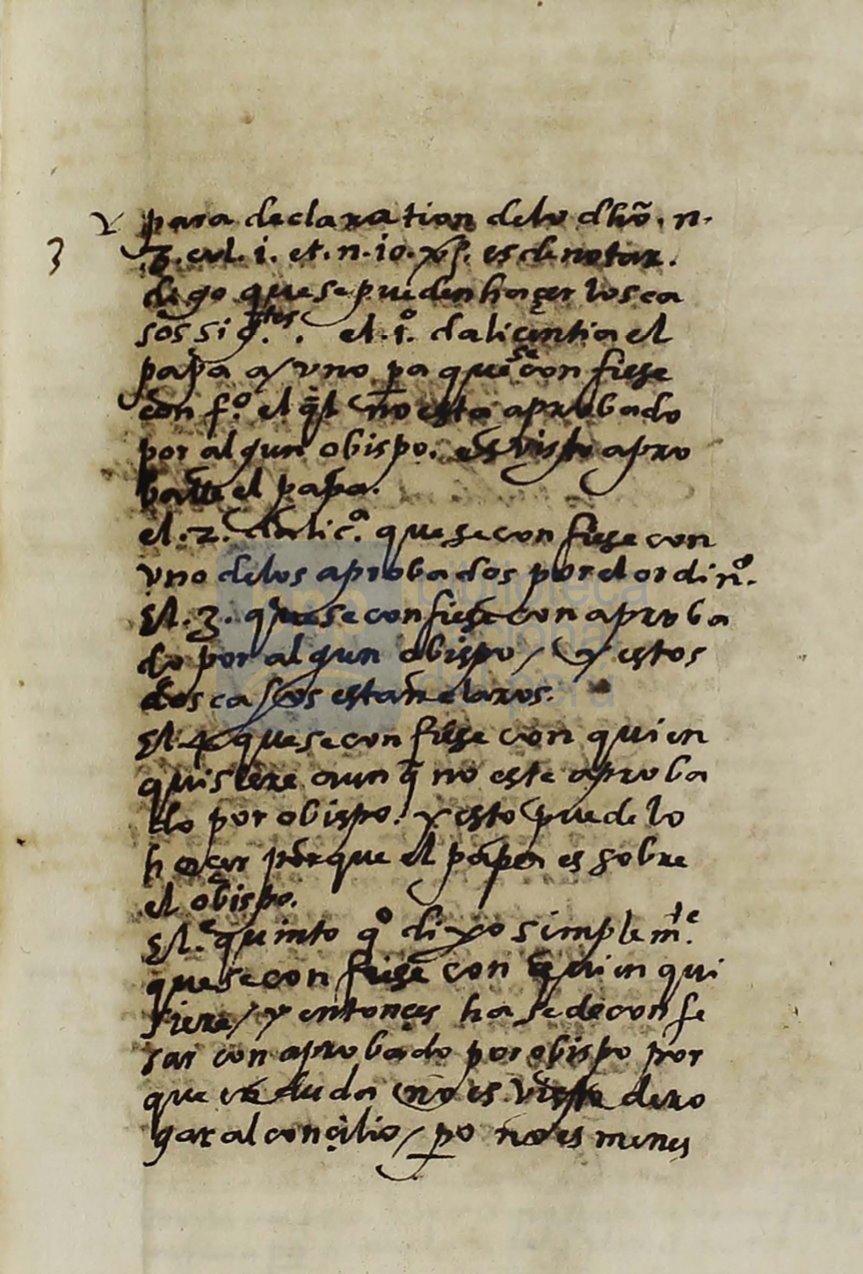 3 Y para declaration delo dhõ. n.
3. cul. 1. et. n. 10. es de notar.
digo que se pueden haçer los ca
sos sigtes. el .1o. da liçentia el
papa a vno pa que se confiese
con fo. el ql no esta aprobado
por algun obispo. es visto apro
barle el papa.
el .2. da lica. que se confiese con
vno delos aprobados por el ordino.
El .3. que se confiese con aproba
do por algun obispo / y estos
dos casos estan claros.
El 4o que se confiese con quien
quisiere aun q̃ no este aproba
do por obispo. y esto puedelo
haçer porque el papa es sobre
el obispo.
El. quinto qo dixo simplemte.
que se confiese con quien qui
siere / y entonçes ha se de confe
sar con aprobado por obispo por
que en duda no es visto dero
gar al conçilio / po no es menes